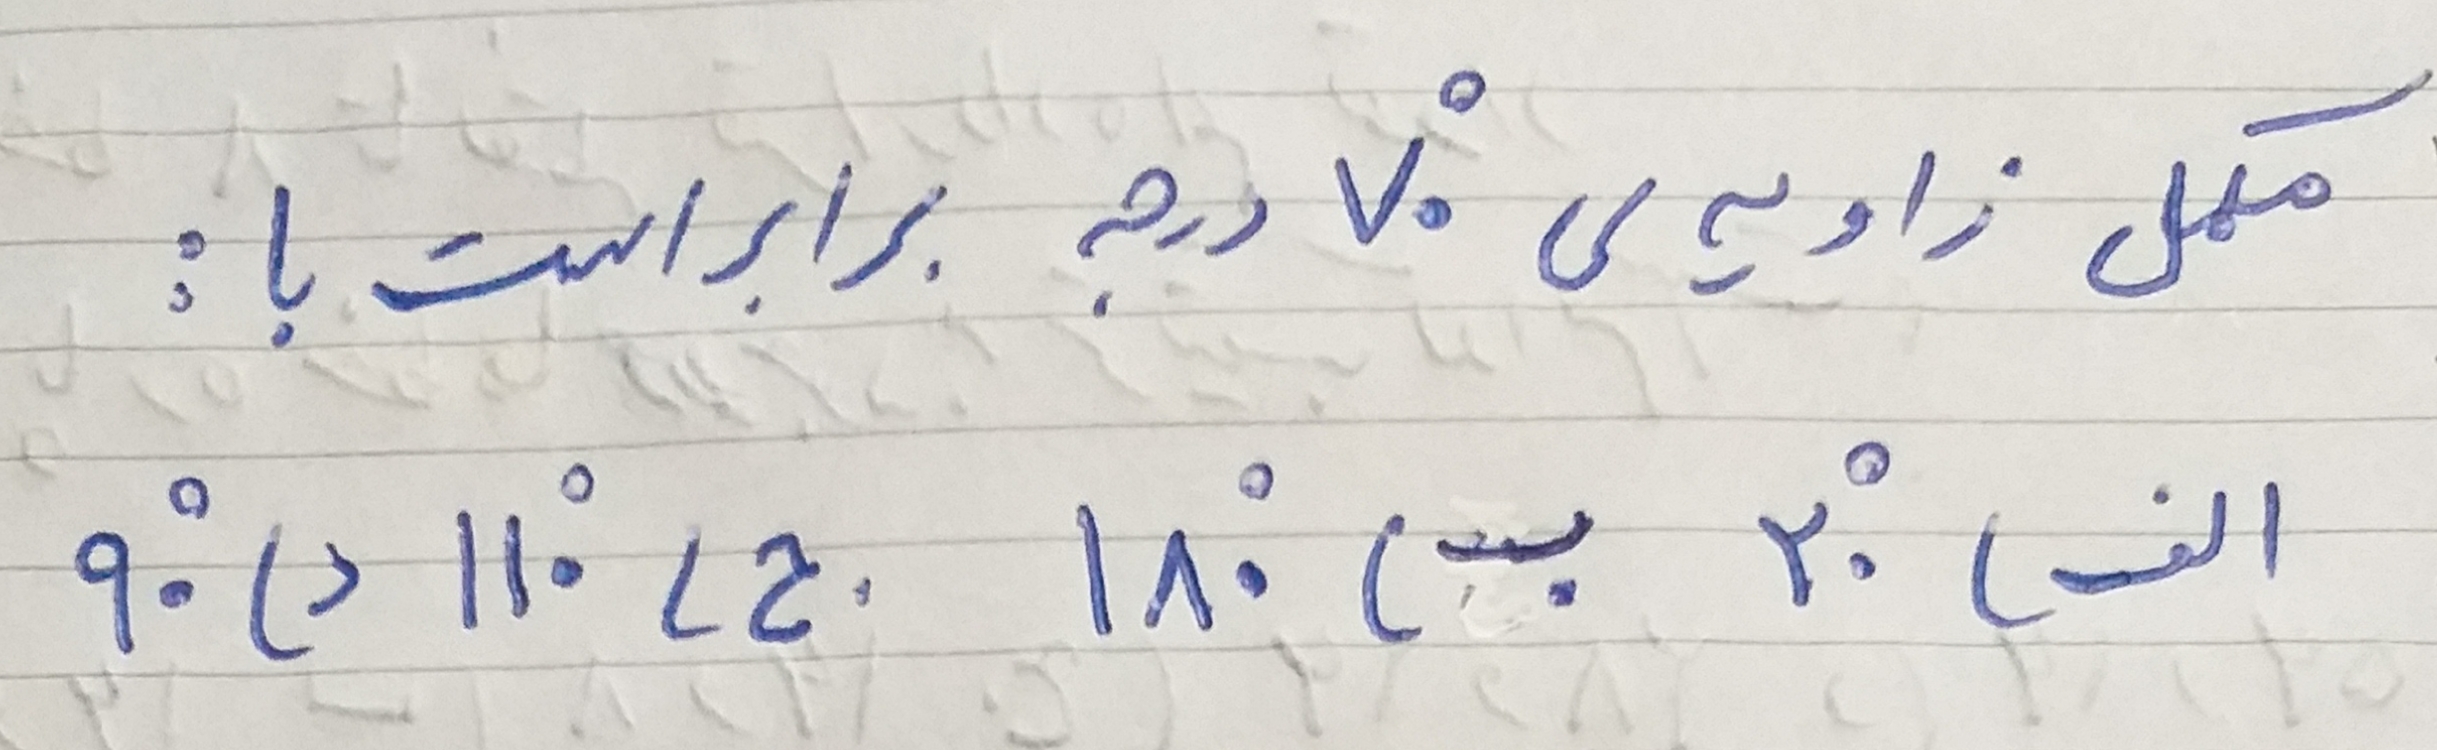 مکمل زاویه ی ۷۰° درجه برابر است با:
الف) ۲۰° ب) ۱۸۰° ج) ۱۱۰° د) ۹۰°